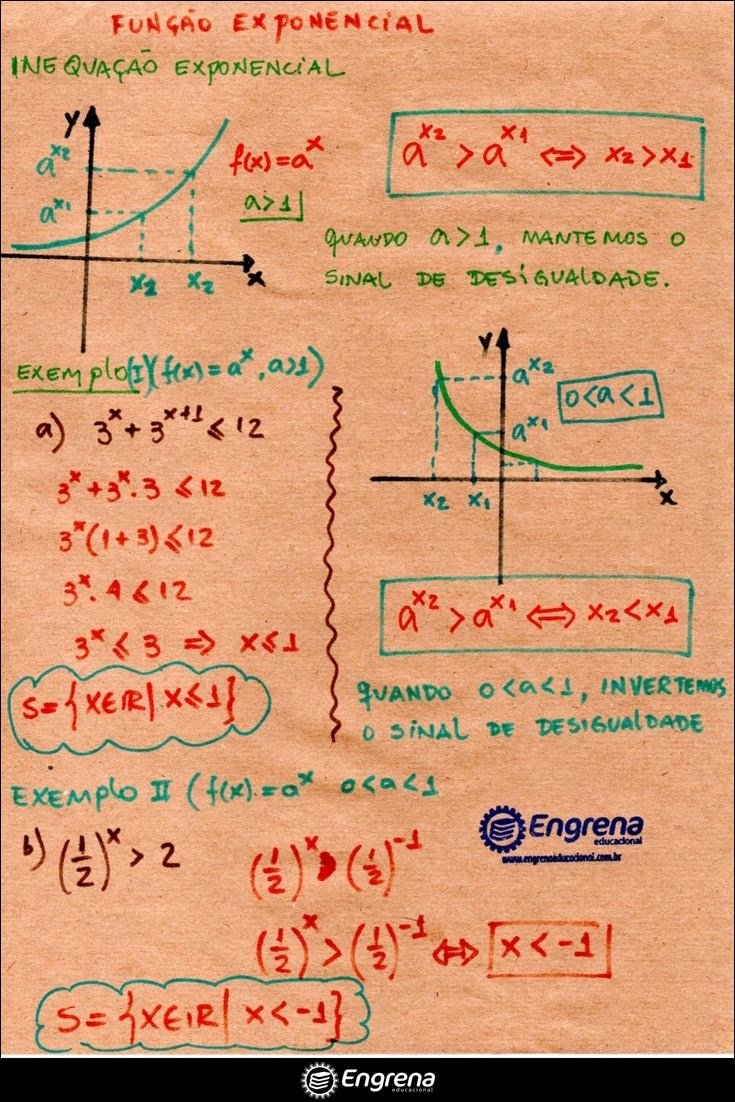 FUNÇÃO EXPONENCIAL
INEQUAÇÃO EXPONENCIAL
y
a^x2
a^x1
x2 x2 x
f(x)=a^x
a>1
a^x2 > a^x1 ⇔ x2 > x1
QUANDO a>1, MANTEMOS O
SINAL DE DESIGUALDADE.
EXEMPLO (I)(f(x)=a^x, a>1)
a) 3^x + 3^x+1 ≤ 12
3^x + 3^x . 3 ≤ 12
3^x (1+3) ≤ 12
3^x . 4 ≤ 12
3^x ≤ 3 ⇒ x ≤ 1
S = {x∈IR | x ≤ 1}
y
a^x2
0<a<1
a^x1
x2 x1 x
a^x2 > a^x1 ⇔ x2 < x1
QUANDO 0<a<1, INVERTEMOS
O SINAL DE DESIGUALDADE
EXEMPLO II (f(x) = a^x 0<a<1
b) (1/2)^x > 2
(1/2)^x > (1/2)^-1
(1/2)^x > (1/2)^-1 ⇔ x < -1
S = {x∈IR | x < -1}
Engrena
educacional
www.engrenaeducacional.com.br
Engrena
educacional